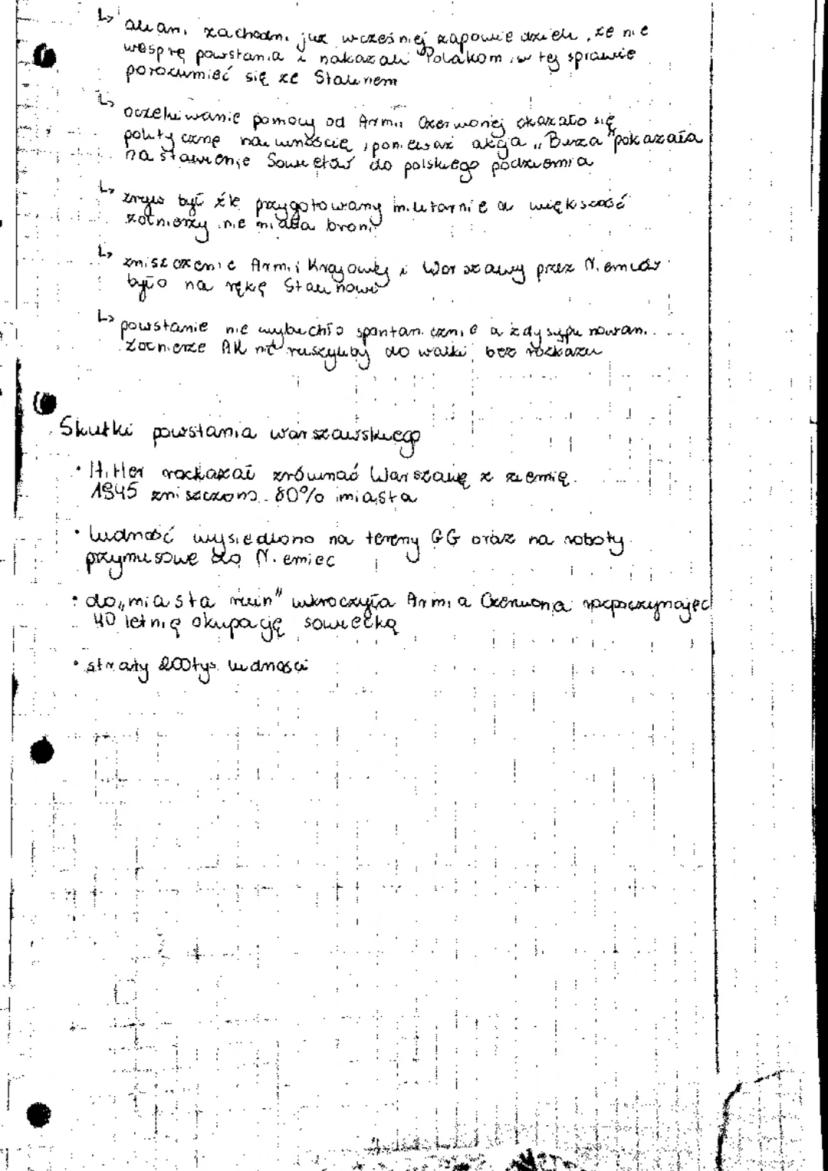 ↳ alianci zachodni już wcześniej zapowiedzieli, że nie
wesprą powstania i nakazali Polakom w tej sprawie
porozumieć się ze Stalinem
↳ oczekiwanie pomocy od Armii Czerwonej okazało się
polityczną naiwnością, ponieważ akcja „Burza" pokazała
nastawienie Sowietów do polskiego podziemia
↳ zryw był źle przygotowany militarnie a większość
żołnierzy nie miała broni
↳ zniszczenie Armii Krajowej i Warszawy przez Niemców
było na rękę Stalinowi
↳ powstanie nie wybuchło spontanicznie a zdyscyplinowani
żołnierze AK nie ruszyliby do walki bez rozkazu
Skutki powstania warszawskiego
• Hitler rozkazał zrównać Warszawę z ziemią.
1945 zniszczono 80% miasta
• ludność wysiedlono na tereny GG oraz na roboty
przymusowe do Niemiec
• do „miasta ruin" wkroczyła Armia Czerwona rozpoczynając
40 letnią okupację sowiecką
• straty 200tys. ludności